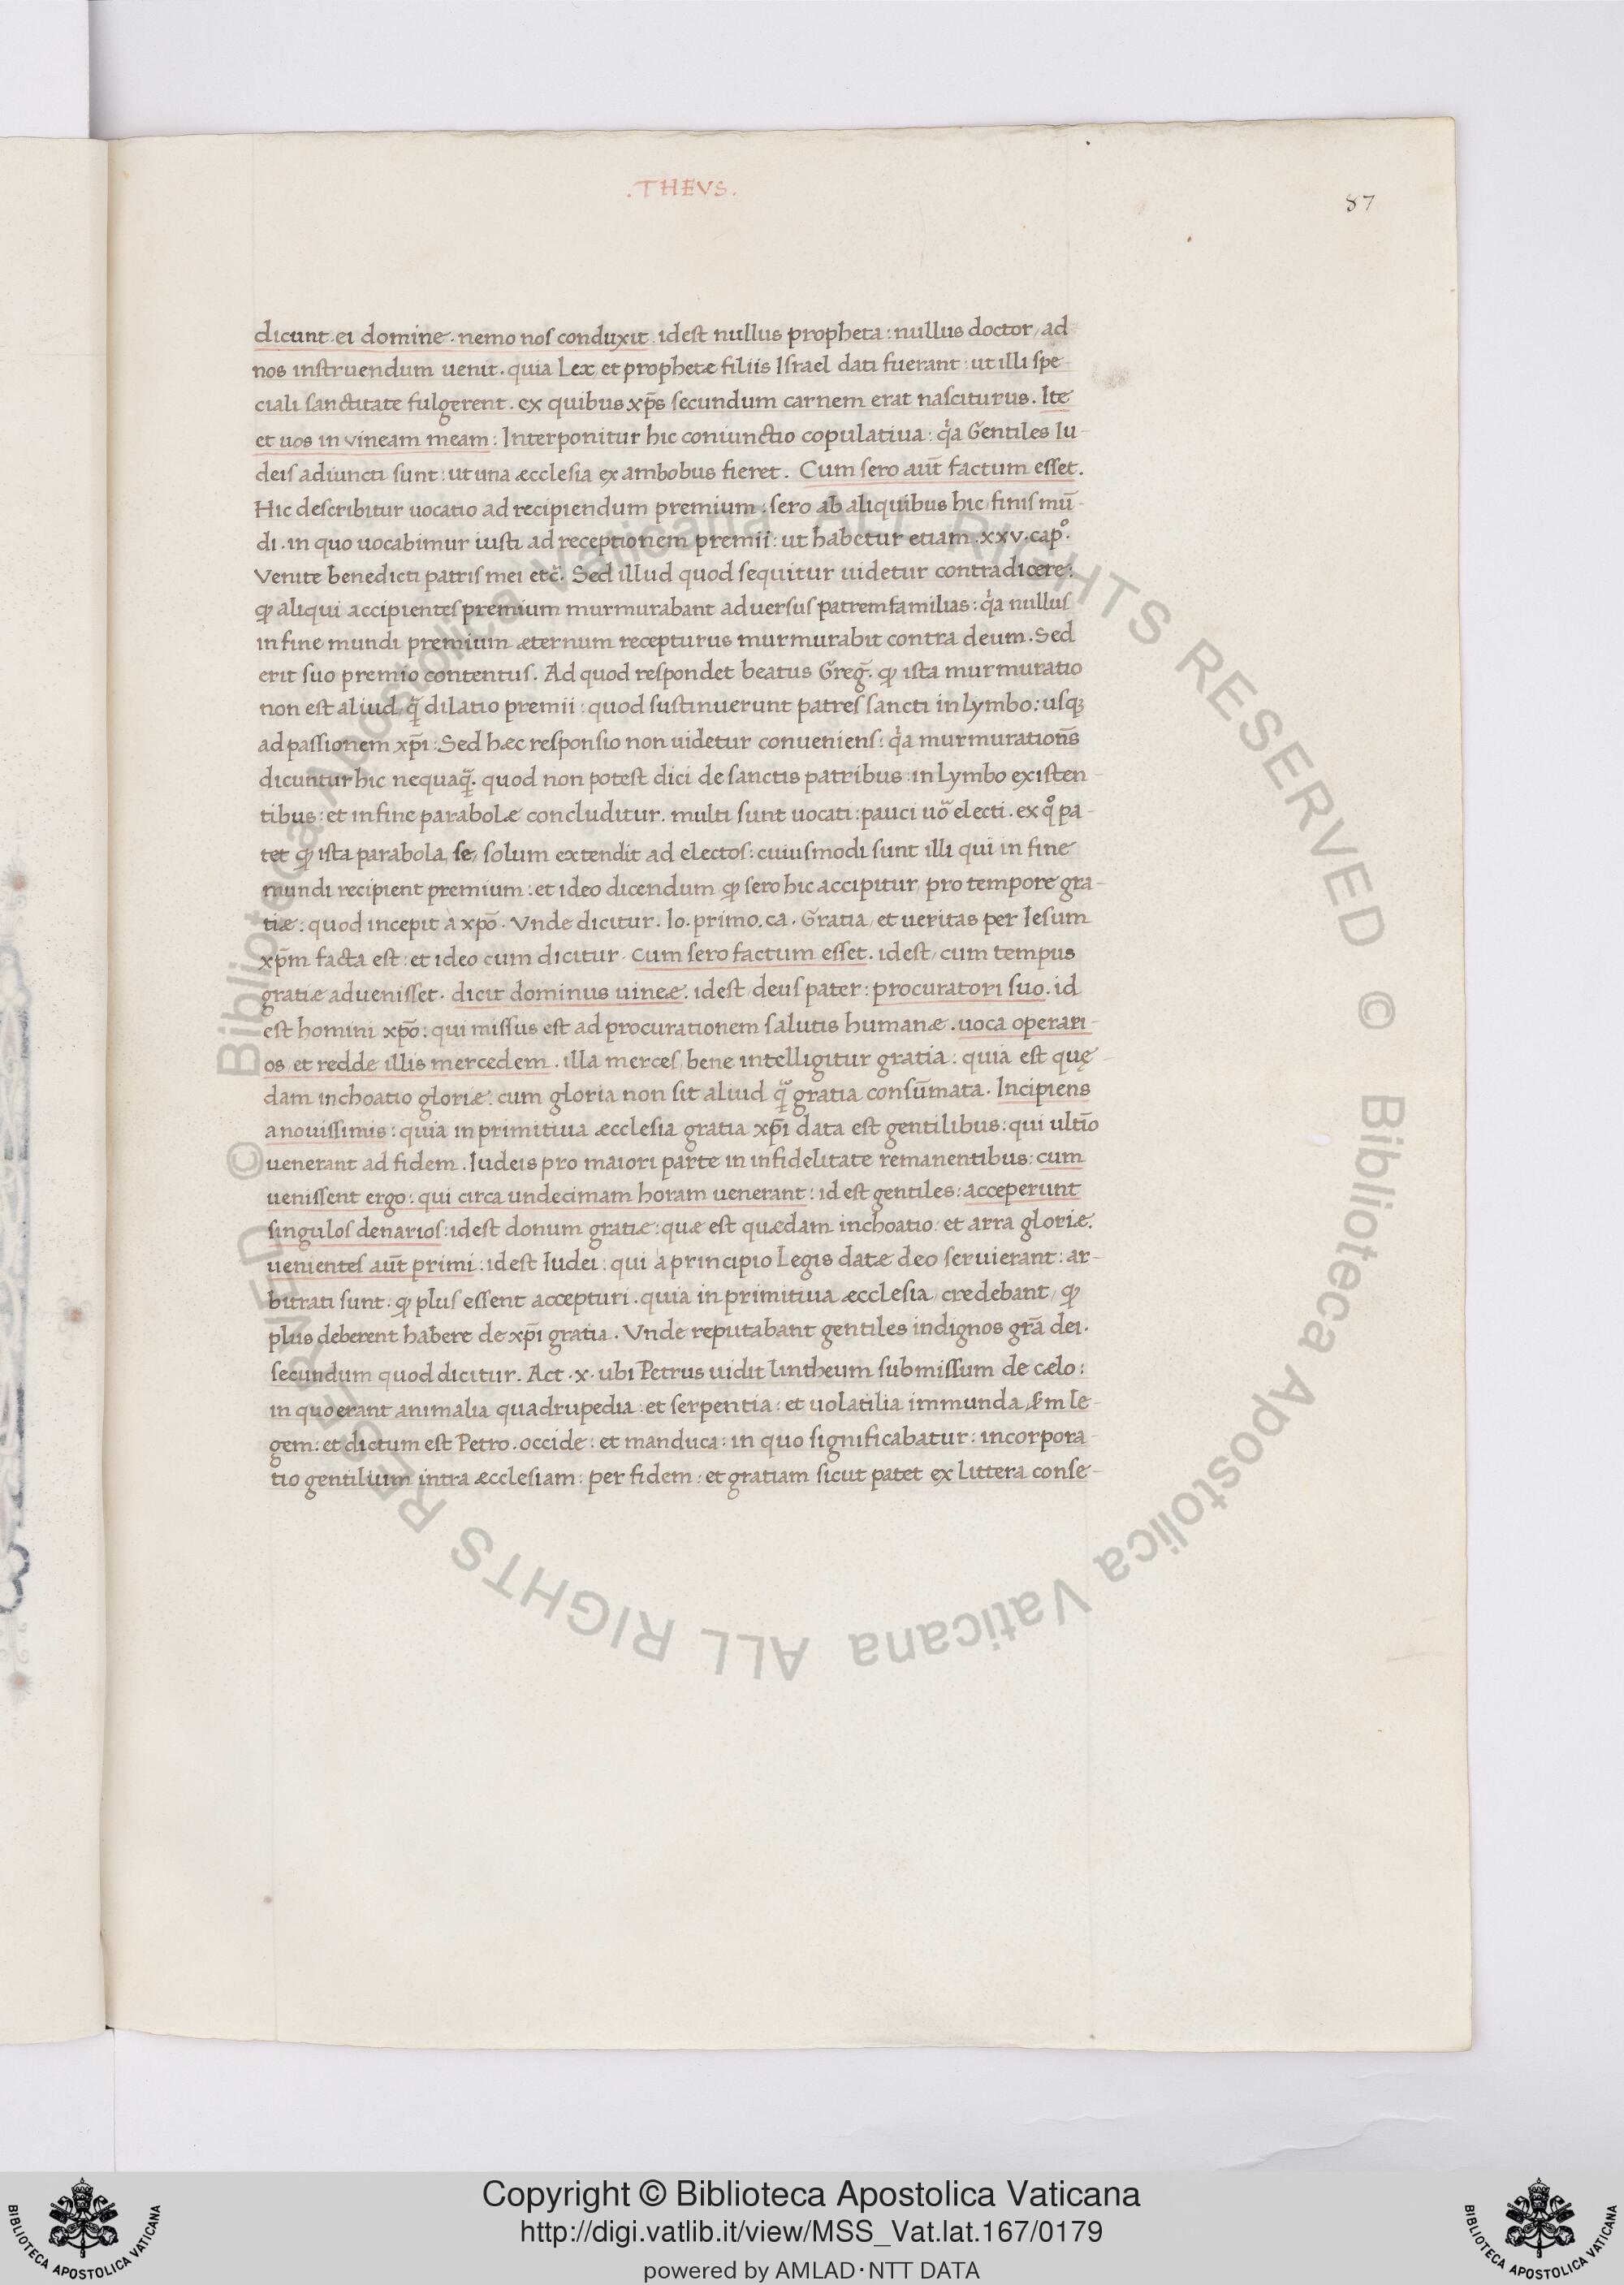 .THEVS.
87
dicunt ei domine. nemo nos conduxit. idest nullus propheta: nullus doctor, ad
nos instruendum uenit. quia Lex et prophetæ filiis Israel dati fuerant: ut illi spe-
ciali sanctitate fulgerent. ex quibus xp̄s secundum carnem erat nasciturus. Ite
et uos in vineam meam: Interponitur hic coniunctio copulatiua: qͥa Gentiles Iu-
deis adiuncti sunt: ut una æcclesia ex ambobus fieret. Cum sero aut̄ factum esset.
Hic describitur uocatio ad recipiendum premium: sero ab aliquibus hic, finis mū-
di. in quo uocabimur iusti ad receptionem premii: ut habetur etiam .xxv. cap͛º.
Venite benedicti patris mei etc̄. Sed illud quod sequitur uidetur contradicere:
ꝙ aliqui accipientes premium murmurabant aduersus patremfamilias: qͥa nullus
in fine mundi premium æternum recepturus murmurabit contra deum. Sed
erit suo premio contentus. Ad quod respondet beatus Greg̃. ꝙ ista murmuratio
non est aliud, q̃ dilatio premii: quod sustinuerunt patres sancti in lymbo: usqꝫ
ad passionem xp̄i: Sed hæc responsio non uidetur conueniens: qͥa murmurationēs
dicuntur hic nequaq̃. quod non potest dici de sanctis patribus: in lymbo existen-
tibus: et in fine parabolæ concluditur. multi sunt uocati: pauci uõ electi. ex qͦ pa-
tet ꝙ ista parabola, se, solum extendit ad electos: cuiusmodi sunt illi qui in fine
mundi recipient premium: et ideo dicendum ꝙ sero hic accipitur, pro tempore gra-
tiæ: quod incepit a xpō. Vnde dicitur. Io. primo. ca. Gratia, et ueritas per Iesum
xp̄m facta est: et ideo cum dicitur. Cum sero factum esset. idest, cum tempus
gratiæ aduenisset. dicit dominus uineæ. idest deus pater: procuratori suo. id
est homini xpō: qui missus est ad procurationem salutis humanæ. uoca operari-
os, et redde illis mercedem. illa merces, bene intelligitur gratia: quia est quę-
dam inchoatio gloriæ: cum gloria non sit aliud q̃ gratia consūmata. Incipiens
a nouissimis: quia in primitiua æcclesia gratia xp̄i data est gentilibus: qui ultīo
uenerant ad fidem. Iudeis pro maiori parte in infidelitate remanentibus: cum
uenissent ergo: qui circa undecimam horam uenerant: id est gentiles: acceperunt
singulos denarios: idest donum gratiæ: quæ est quædam inchoatio: et arra gloriæ.
uenientes aut̄ primi: idest Iudei: qui a principio Legis datæ deo seruierant: ar-
bitrati sunt. ꝙ plus essent accepturi. quia in primitiua æcclesia, credebant, ꝙ
plus deberent habere de xp̄i gratia. Vnde reputabant gentiles indignos grā dei.
secundum quod dicitur. Act. x. ubi Petrus uidit lintheum submissum de cælo:
in quo erant animalia quadrupedia: et serpentia: et uolatilia immunda, s̄m le-
gem: et dictum est Petro. occide: et manduca: in quo significabatur: incorpora-
tio gentilium intra æcclesiam: per fidem: et gratiam sicut patet ex littera conse-
© Biblioteca Apostolica Vaticana ALL RIGHTS RESERVED © Biblioteca Apostolica Vaticana ALL RIGHTS RESERVED
BIBLIOTECA APOSTOLICA VATICANA
Copyright © Biblioteca Apostolica Vaticana
http://digi.vatlib.it/view/MSS_Vat.lat.167/0179
powered by AMLAD·NTT DATA
BIBLIOTECA APOSTOLICA VATICANA